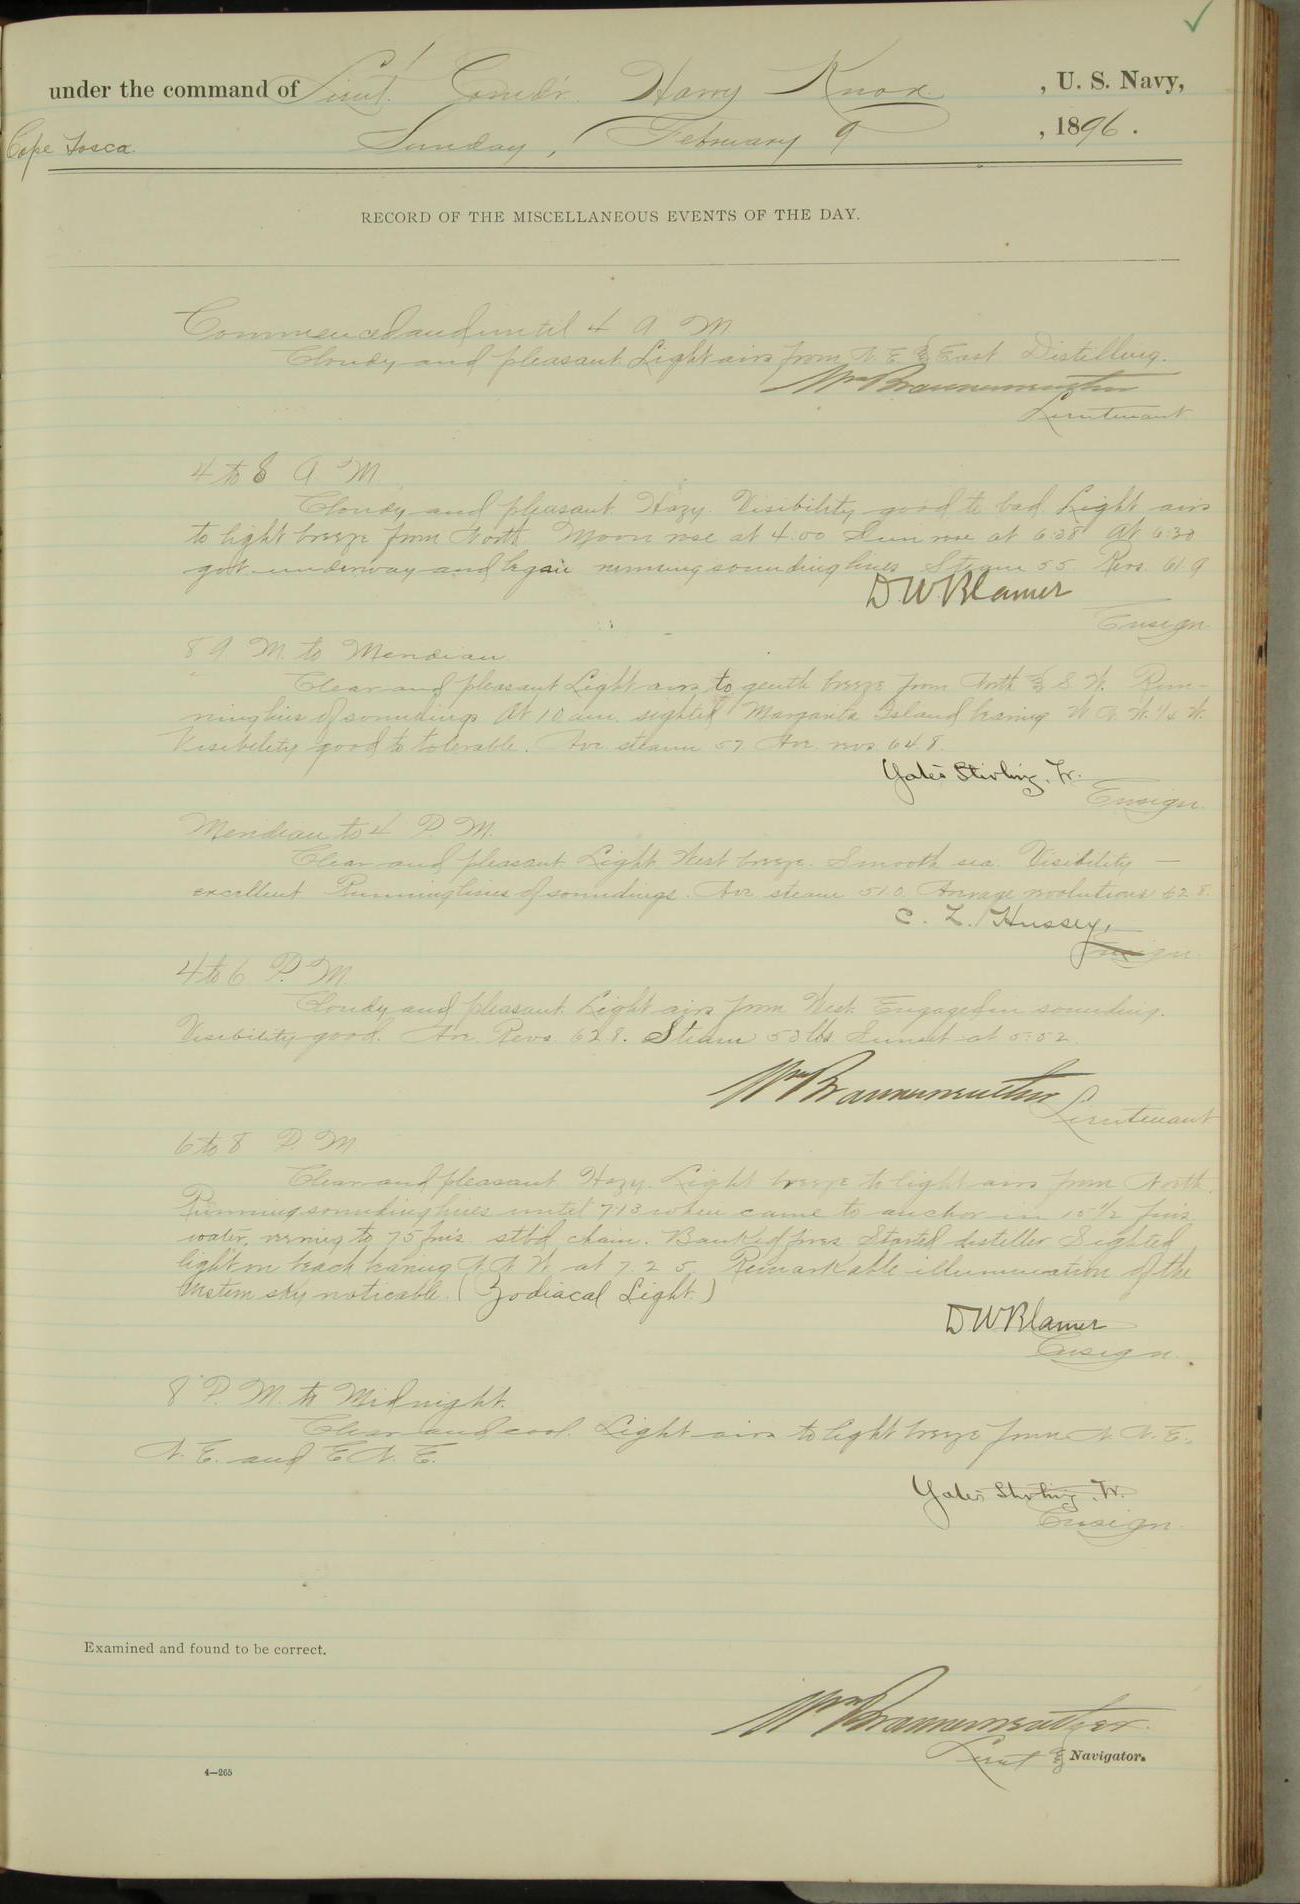 under the command of Lieut. Comdr. Harry Knox , U. S. Navy,
Cape Tosca. Sunday, February 9 , 1896.
RECORD OF THE MISCELLANEOUS EVENTS OF THE DAY.
Commenced and until 4 A. M.
Cloudy and pleasant. Light airs from N. E. & East Distilling.
Wm Braunersreuther
Lieutenant
4 to 8 A. M.
Cloudy and pleasant. Hazy. Visibility good to bad. Light airs
to light breeze from North. Moon rose at 4.00 Sun rose at 6:38 At 6:30
got underway and began running sounding lines. Steam 55 Revs. 61.9
D. W. Blamer
Ensign.
8 A. M. to Meridian
Clear and pleasant. Light airs to gentle breeze from North & S. W. Run-
ning lines of soundings At 10 a.m. sighted Margarita Island bearing W. 1/4 W.
Visibility good to tolerable. Ave. steam 57 Ave. revs. 64.8.
Yates Stirling, Jr.
Ensign.
Meridian to 4 P. M.
Clear and pleasant. Light West breeze. Smooth sea. Visibility —
excellent Running lines of soundings. Ave steam 51.0. Average revolutions 62.8.
C. L. Hussey,
Ensign.
4 to 6 P. M.
Cloudy and pleasant. Light airs from West. Engaged in sounding.
Visibility good. Ave. Revs. 62.8. Steam 53 lbs. Sunset at 5:52.
Wm Braunersreuther
Lieutenant
6 to 8 P. M.
Clear and pleasant. Hazy. Light breeze to light airs from North.
Running sounding lines until 7:13 when came to anchor in 15 1/2 fms.
water, veering to 75 fms. stb'd chain. Banked fires. Started distiller Sighted
light on beach bearing N. N. W. at 7.25. Remarkable illumination of the
Western sky noticable. (Zodiacal Light.)
D W Blamer
Ensign.
8 P. M. to Midnight.
Clear and cool. Light airs to light breeze from N. N. E.,
N. E. and E N. E.
Yates Stirling, Jr.
Ensign.
Examined and found to be correct.
Wm Braunersreuther
Lieut & Navigator.
4—265